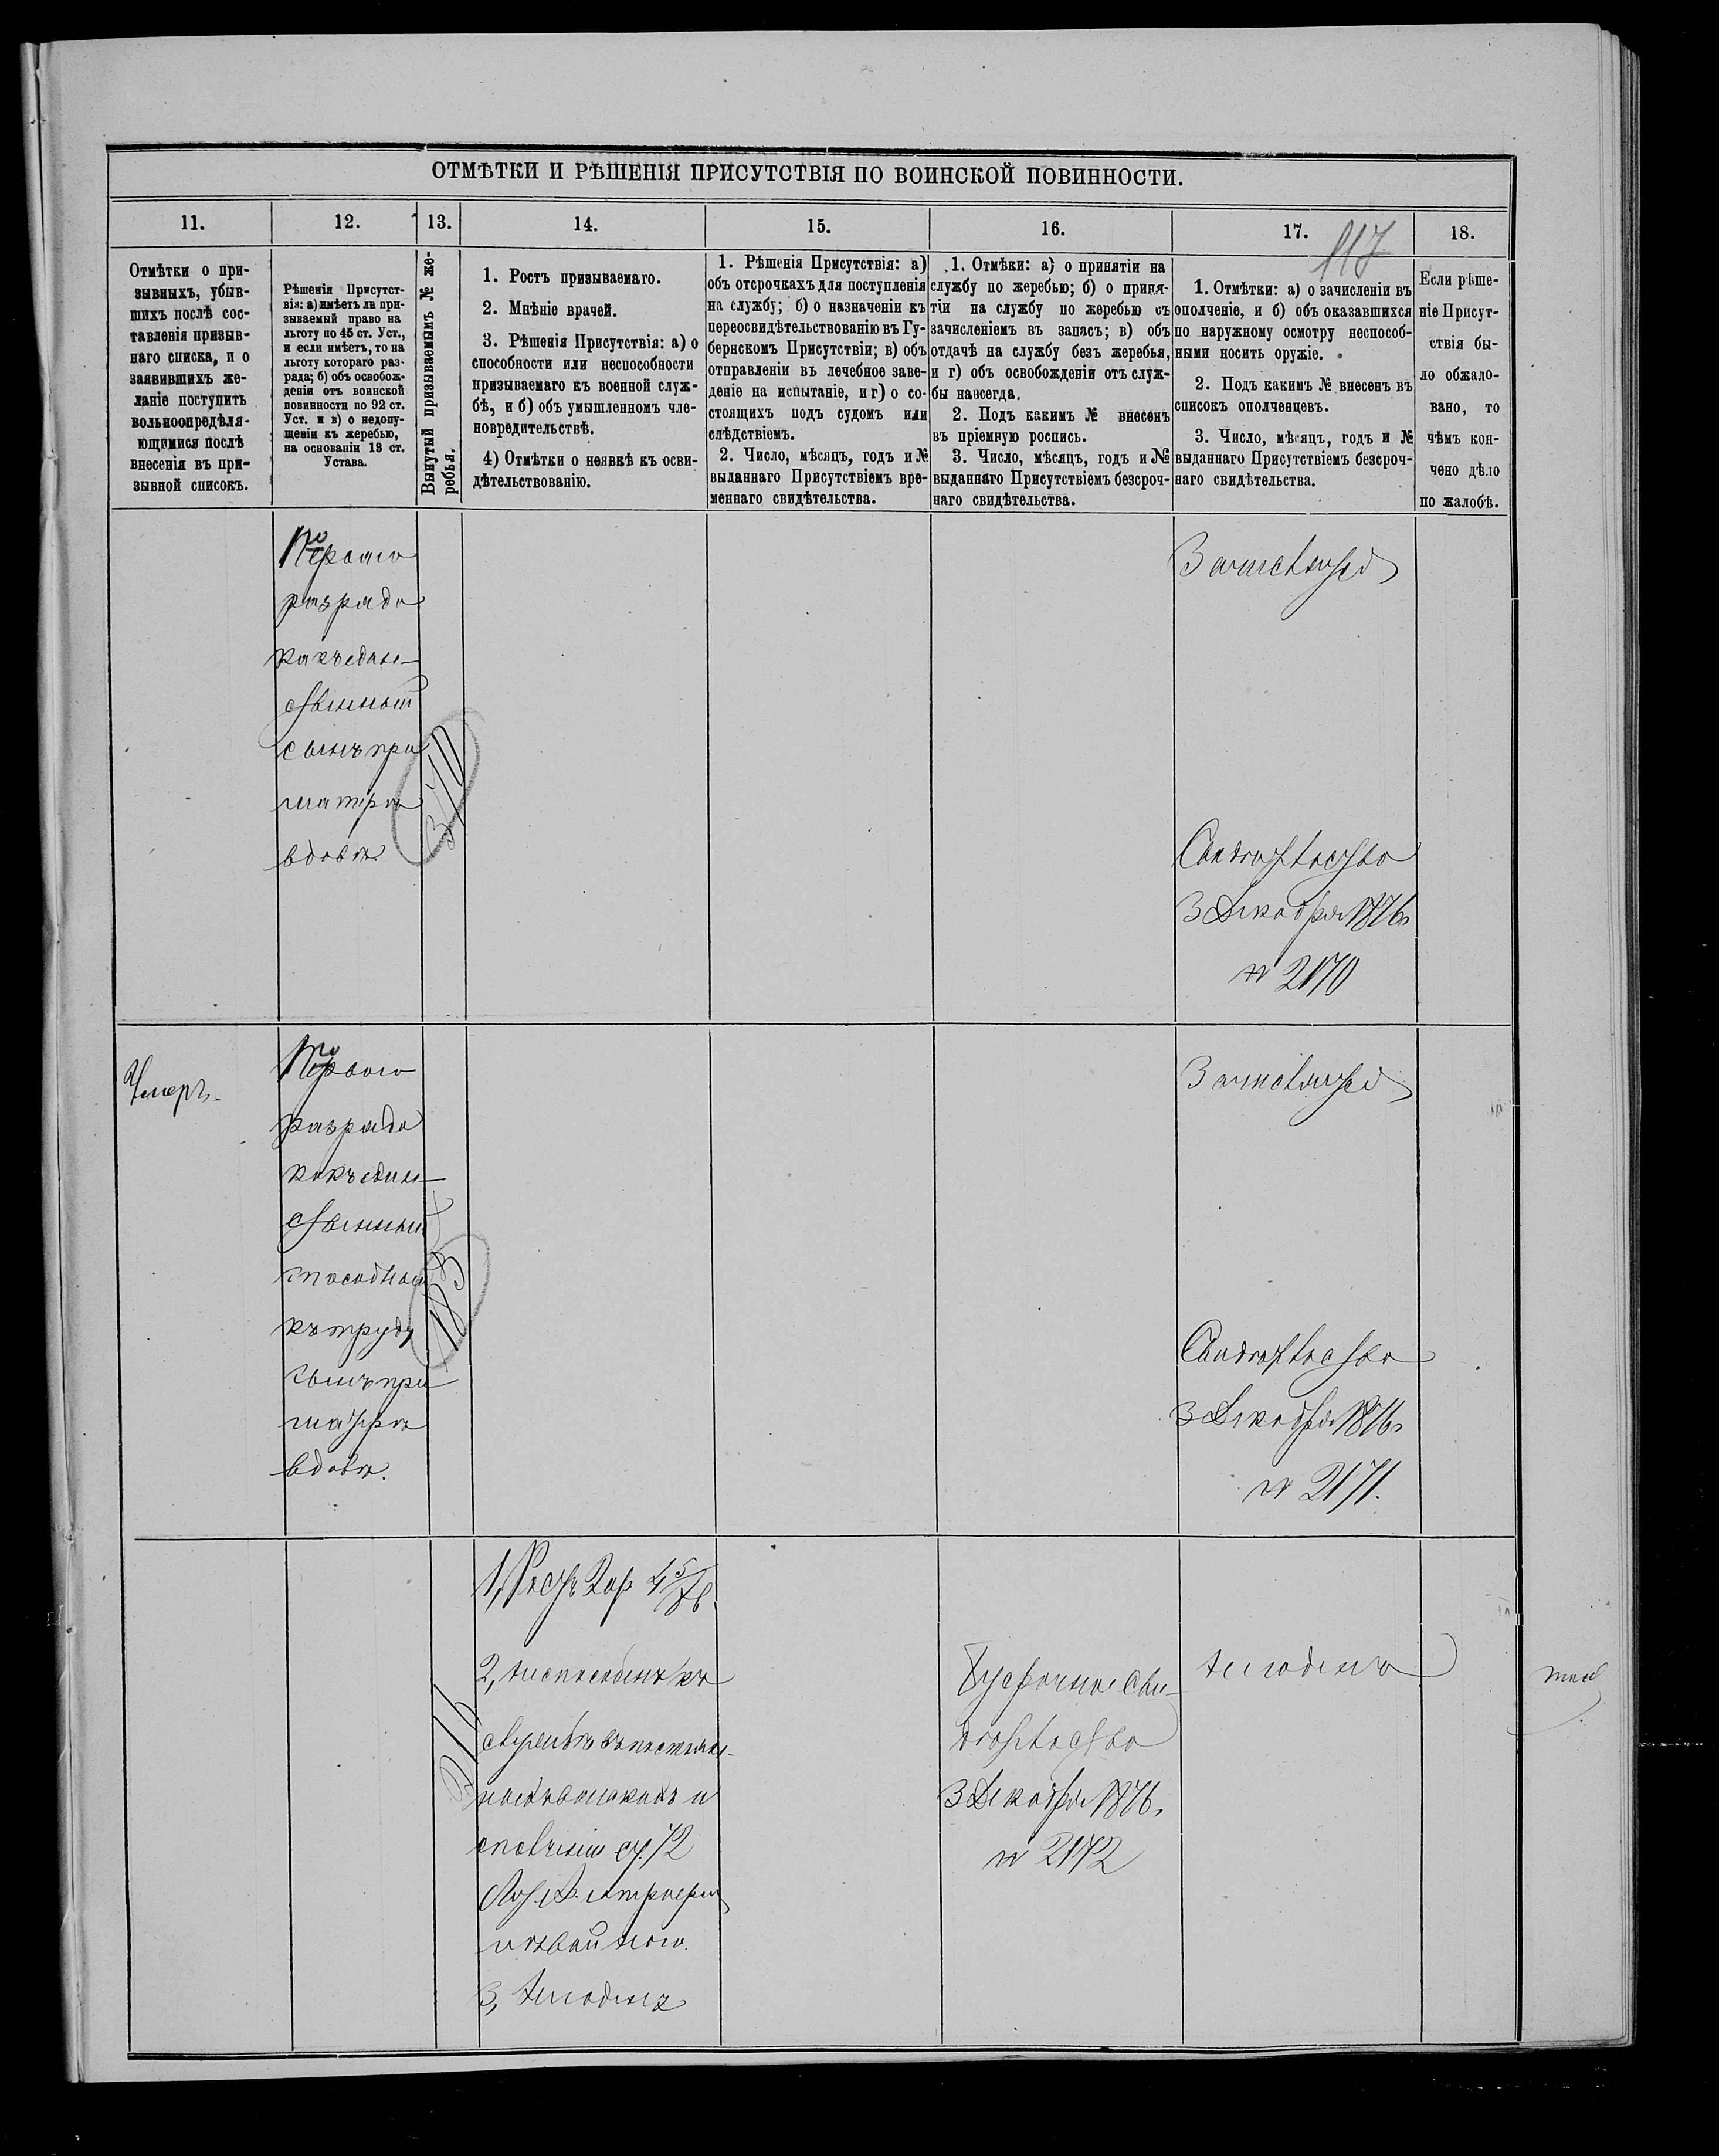 ОТМѢТКИ И РѢШЕНІЯ ПРИСУТСТВІЯ ПО ВОИНСКОЙ ПОВИННОСТИ.
11.
12.
13.
14.
15.
16.
17.
18.
117
Отмѣтки о при-
зывныхъ, убыв-
шихъ послѣ сос-
тавленія призыв-
наго списка, и о
заявившихъ же-
ланіе поступить
вольноопредѣля-
ющимися послѣ
внесенія въ при-
зывной списокъ.
Рѣшенія Присутст-
вія: а) имѣетъ ли при-
зываемый право на
льготу по 45 ст. Уст.,
и если имѣетъ, то на
льготу котораго раз-
ряда; б) объ освобож-
деніи отъ воинской
повинности по 92 ст.
Уст. и в) о недопу-
щеніи къ жеребью,
на основаніи 13 ст.
Устава.
Вынутый призываемымъ № же-
ребья.
1. Ростъ призываемаго.
2. Мнѣніе врачей.
3. Рѣшенія Присутствія: а) о
способности или неспособности
призываемаго къ военной служ-
бѣ, и б) объ умышленномъ чле-
новредительствѣ.
4) Отмѣтки о неявкѣ къ осви-
дѣтельствованію.
1. Рѣшенія Присутствія: а)
объ отсрочкахъ для поступленія
на службу; б) о назначеніи къ
переосвидѣтельствованію въ Гу-
бернскомъ Присутствіи; в) объ
отправленіи въ лечебное заве-
деніе на испытаніе, и г) о со-
стоящихъ подъ судомъ или
слѣдствіемъ.
2. Число, мѣсяцъ, годъ и №
выданнаго Присутствіемъ вре-
меннаго свидѣтельства.
1. Отмѣки: а) о принятіи на
службу по жеребью; б) о приня-
тіи на службу по жеребью съ
зачисленіемъ въ запасъ; в) объ
отдачѣ на службу безъ жеребья,
и г) объ освобожденіи отъ служ-
бы навсегда.
2. Подъ какимъ № внесенъ
въ пріемную роспись.
3. Число, мѣсяцъ, годъ и №
выданнаго Присутствіемъ безсроч-
наго свидѣтельства.
1. Отмѣтки: а) о зачисленіи въ
ополченіе, и б) объ оказавшихся
по наружному осмотру неспособ-
ными носить оружіе.
2. Подъ какимъ № внесенъ въ
списокъ ополченцевъ.
3. Число, мѣсяцъ, годъ и №
выданнаго Присутствіемъ безсроч-
наго свидѣтельства.
Если рѣше-
ніе Присут-
ствія бы-
ло обжало-
вано, то
чѣмъ кон-
чено дѣло
по жалобѣ.
Перваго
разряда
какъ един-
ственный
сынъ при
матери
вдовѣ
370
Свидѣтельство
3 Декабря 1876
№ 2170
Умеръ.
Перваго
разряда
какъ един-
ственный
способный
къ труду
сынъ при
матери
вдовѣ.
183
Свидѣтельство
3 Декабря 1876
№ 2171.
316
1, Ростъ 2 ар 4 5/8 в
2, неспособенъ къ
ст. 72
3, Негоденъ
Безсрочное Сви-
дѣтельство
3 Декабря 1876.
№ 2172
Негоденъ